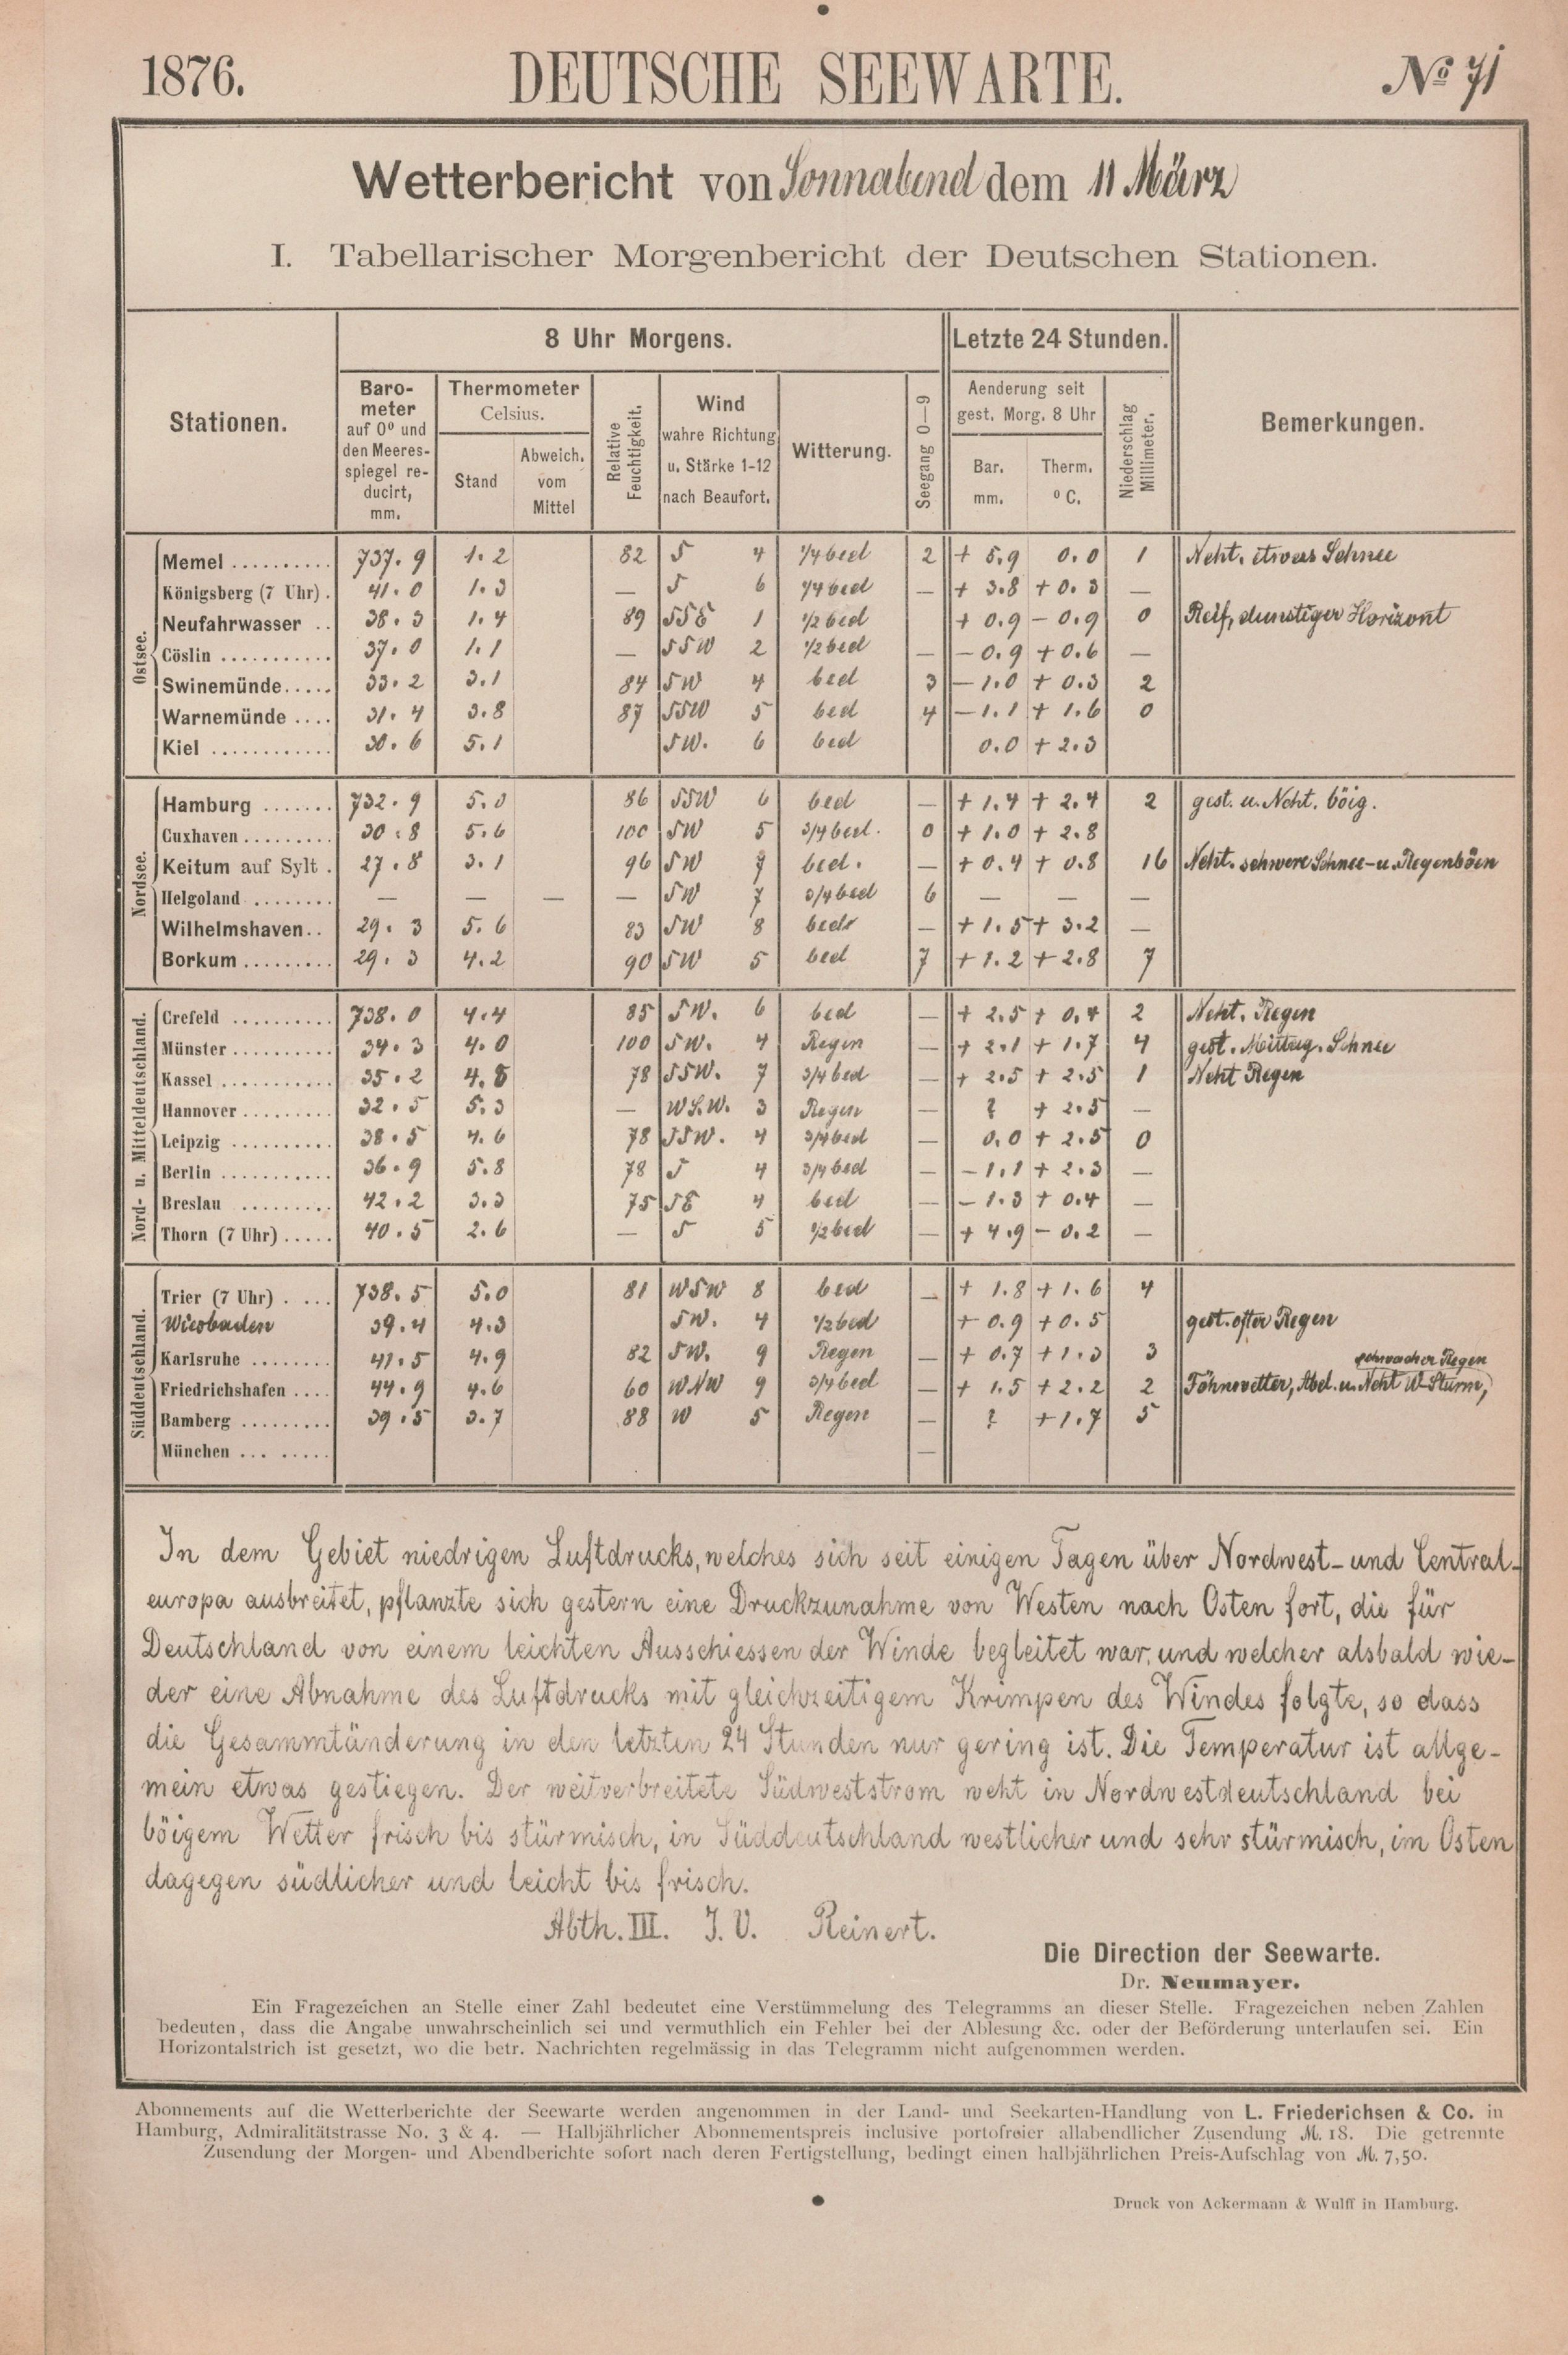 1876. DEUTSCHE SEEWARTE. No 71
Wetterbericht von Sonnabend dem 11 März
I. Tabellarischer Morgenbericht der Deutschen Stationen.
Stationen. 8 Uhr Morgens. Letzte 24 Stunden. Bemerkungen.
Barometer auf 0° und den Meeresspiegel reducirt, mm. Thermometer Celsius. Stand Abweich. vom Mittel Relative Feuchtigkeit. Wind wahre Richtung u. Stärke 1-12 nach Beaufort. Witterung. Seegang 0—9 Aenderung seit gest. Morg. 8 Uhr Bar. mm. Therm. ° C. Niederschlag Millimeter.
Ostsee.
Memel 737.9 1.2 82 S 4 1/4 bed 2 + 5.9 0.0 1 Ncht. etwas Schnee
Königsberg (7 Uhr) 41.0 1.3 — S 6 1/4 bed — + 3.8 + 0.3 —
Neufahrwasser 38.3 1.4 89 SSE 1 1/2 bed + 0.9 - 0.9 0 Reif, dunstiger Horizont
Cöslin 37.0 1.1 — SSW 2 1/2 bed — - 0.9 + 0.6 —
Swinemünde 33.2 3.1 84 SW 4 bed 3 - 1.0 + 0.3 2
Warnemünde 31.4 3.8 87 SSW 5 bed 4 - 1.1 + 1.6 0
Kiel 30.6 5.1 SW. 6 bed 0.0 + 2.3
Nordsee.
Hamburg 732.9 5.0 86 SSW 6 bed — + 1.4 + 2.4 2 gest. u. Ncht. böig.
Cuxhaven 30.8 5.6 100 SW 5 3/4 bed. 0 + 1.0 + 2.8
Keitum auf Sylt 27.8 3.1 96 SW 7 bed. — + 0.4 + 0.8 16 Ncht. schwere Schnee- u. Regenböen
Helgoland — — — — SW 7 3/4 bed 6 — — —
Wilhelmshaven 29.3 5.6 83 SW 8 bed — + 1.5 + 3.2 —
Borkum 29.3 4.2 90 SW 5 bed 7 + 1.2 + 2.8 7
Nord- u. Mitteldeutschland.
Crefeld 738.0 4.4 85 SW. 6 bed — + 2.5 + 0.4 2 Ncht. Regen
Münster 34.3 4.0 100 SW. 4 Regen — + 2.1 + 1.7 4 gest. Mittag. Schnee
Kassel 35.2 78 SSW. 7 3/4 bed — + 2.5 + 2.5 1 Ncht Regen
Hannover 32.5 5.3 — WSW. 3 Regen — ? + 2.5 —
Leipzig 38.5 4.6 78 SSW. 4 3/4 bed — 0.0 + 2.5 0
Berlin 36.9 5.8 78 S 4 3/4 bed — - 1.1 + 2.3 —
Breslau 42.2 3.3 75 SE 4 bed — - 1.3 + 0.4 —
Thorn (7 Uhr) 40.5 2.6 — S 5 1/2 bed — + 4.9 - 0.2 —
Süddeutschland.
Trier (7 Uhr) 738.5 5.0 81 WSW 8 bed — + 1.8 + 1.6 4
Wiesbaden 39.4 4.3 SW. 4 1/2 bed + 0.9 + 0.5 gest. öfter Regen
Karlsruhe 41.5 4.9 82 SW. 9 Regen — + 0.7 + 1.3 3
schwacher Regen
Friedrichshafen 44.9 4.6 60 WNW 9 3/4 bed — + 1.5 + 2.2 2 Föhnwetter, Abd. u. Ncht W-Sturm,
Bamberg 39.5 3.7 88 W 5 Regen — ? + 1.7 5
München —
In dem Gebiet niedrigen Luftdrucks, welches sich seit einigen Tagen über Nordwest- und Central-
europa ausbreitet, pflanzte sich gestern eine Druckzunahme von Westen nach Osten fort, die für
Deutschland von einem leichten Ausschiessen der Winde begleitet war, und welcher alsbald wie-
der eine Abnahme des Luftdrucks mit gleichzeitigem Krimpen des Windes folgte, so dass
die Gesammtänderung in den letzten 24 Stunden nur gering ist. Die Temperatur ist allge-
mein etwas gestiegen. Der weitverbreitete Südweststrom weht in Nordwestdeutschland bei
böigem Wetter frisch bis stürmisch, in Süddeutschland westlicher und sehr stürmisch, im Osten
dagegen südlicher und leicht bis frisch.
Abth. III. I. V. Reinert.
Die Direction der Seewarte.
Dr. Neumayer.
Ein Fragezeichen an Stelle einer Zahl bedeutet eine Verstümmelung des Telegramms an dieser Stelle. Fragezeichen neben Zahlen
bedeuten, dass die Angabe unwahrscheinlich sei und vermuthlich ein Fehler bei der Ablesung &c. oder der Beförderung unterlaufen sei. Ein
Horizontalstrich ist gesetzt, wo die betr. Nachrichten regelmässig in das Telegramm nicht aufgenommen werden.
Abonnements auf die Wetterberichte der Seewarte werden angenommen in der Land- und Seekarten-Handlung von L. Friederichsen & Co. in
Hamburg, Admiralitätstrasse No. 3 & 4. — Halbjährlicher Abonnementspreis inclusive portofreier allabendlicher Zusendung M. 18. Die getrennte
Zusendung der Morgen- und Abendberichte sofort nach deren Fertigstellung, bedingt einen halbjährlichen Preis-Aufschlag von M. 7,50.
Druck von Ackermann & Wulff in Hamburg.